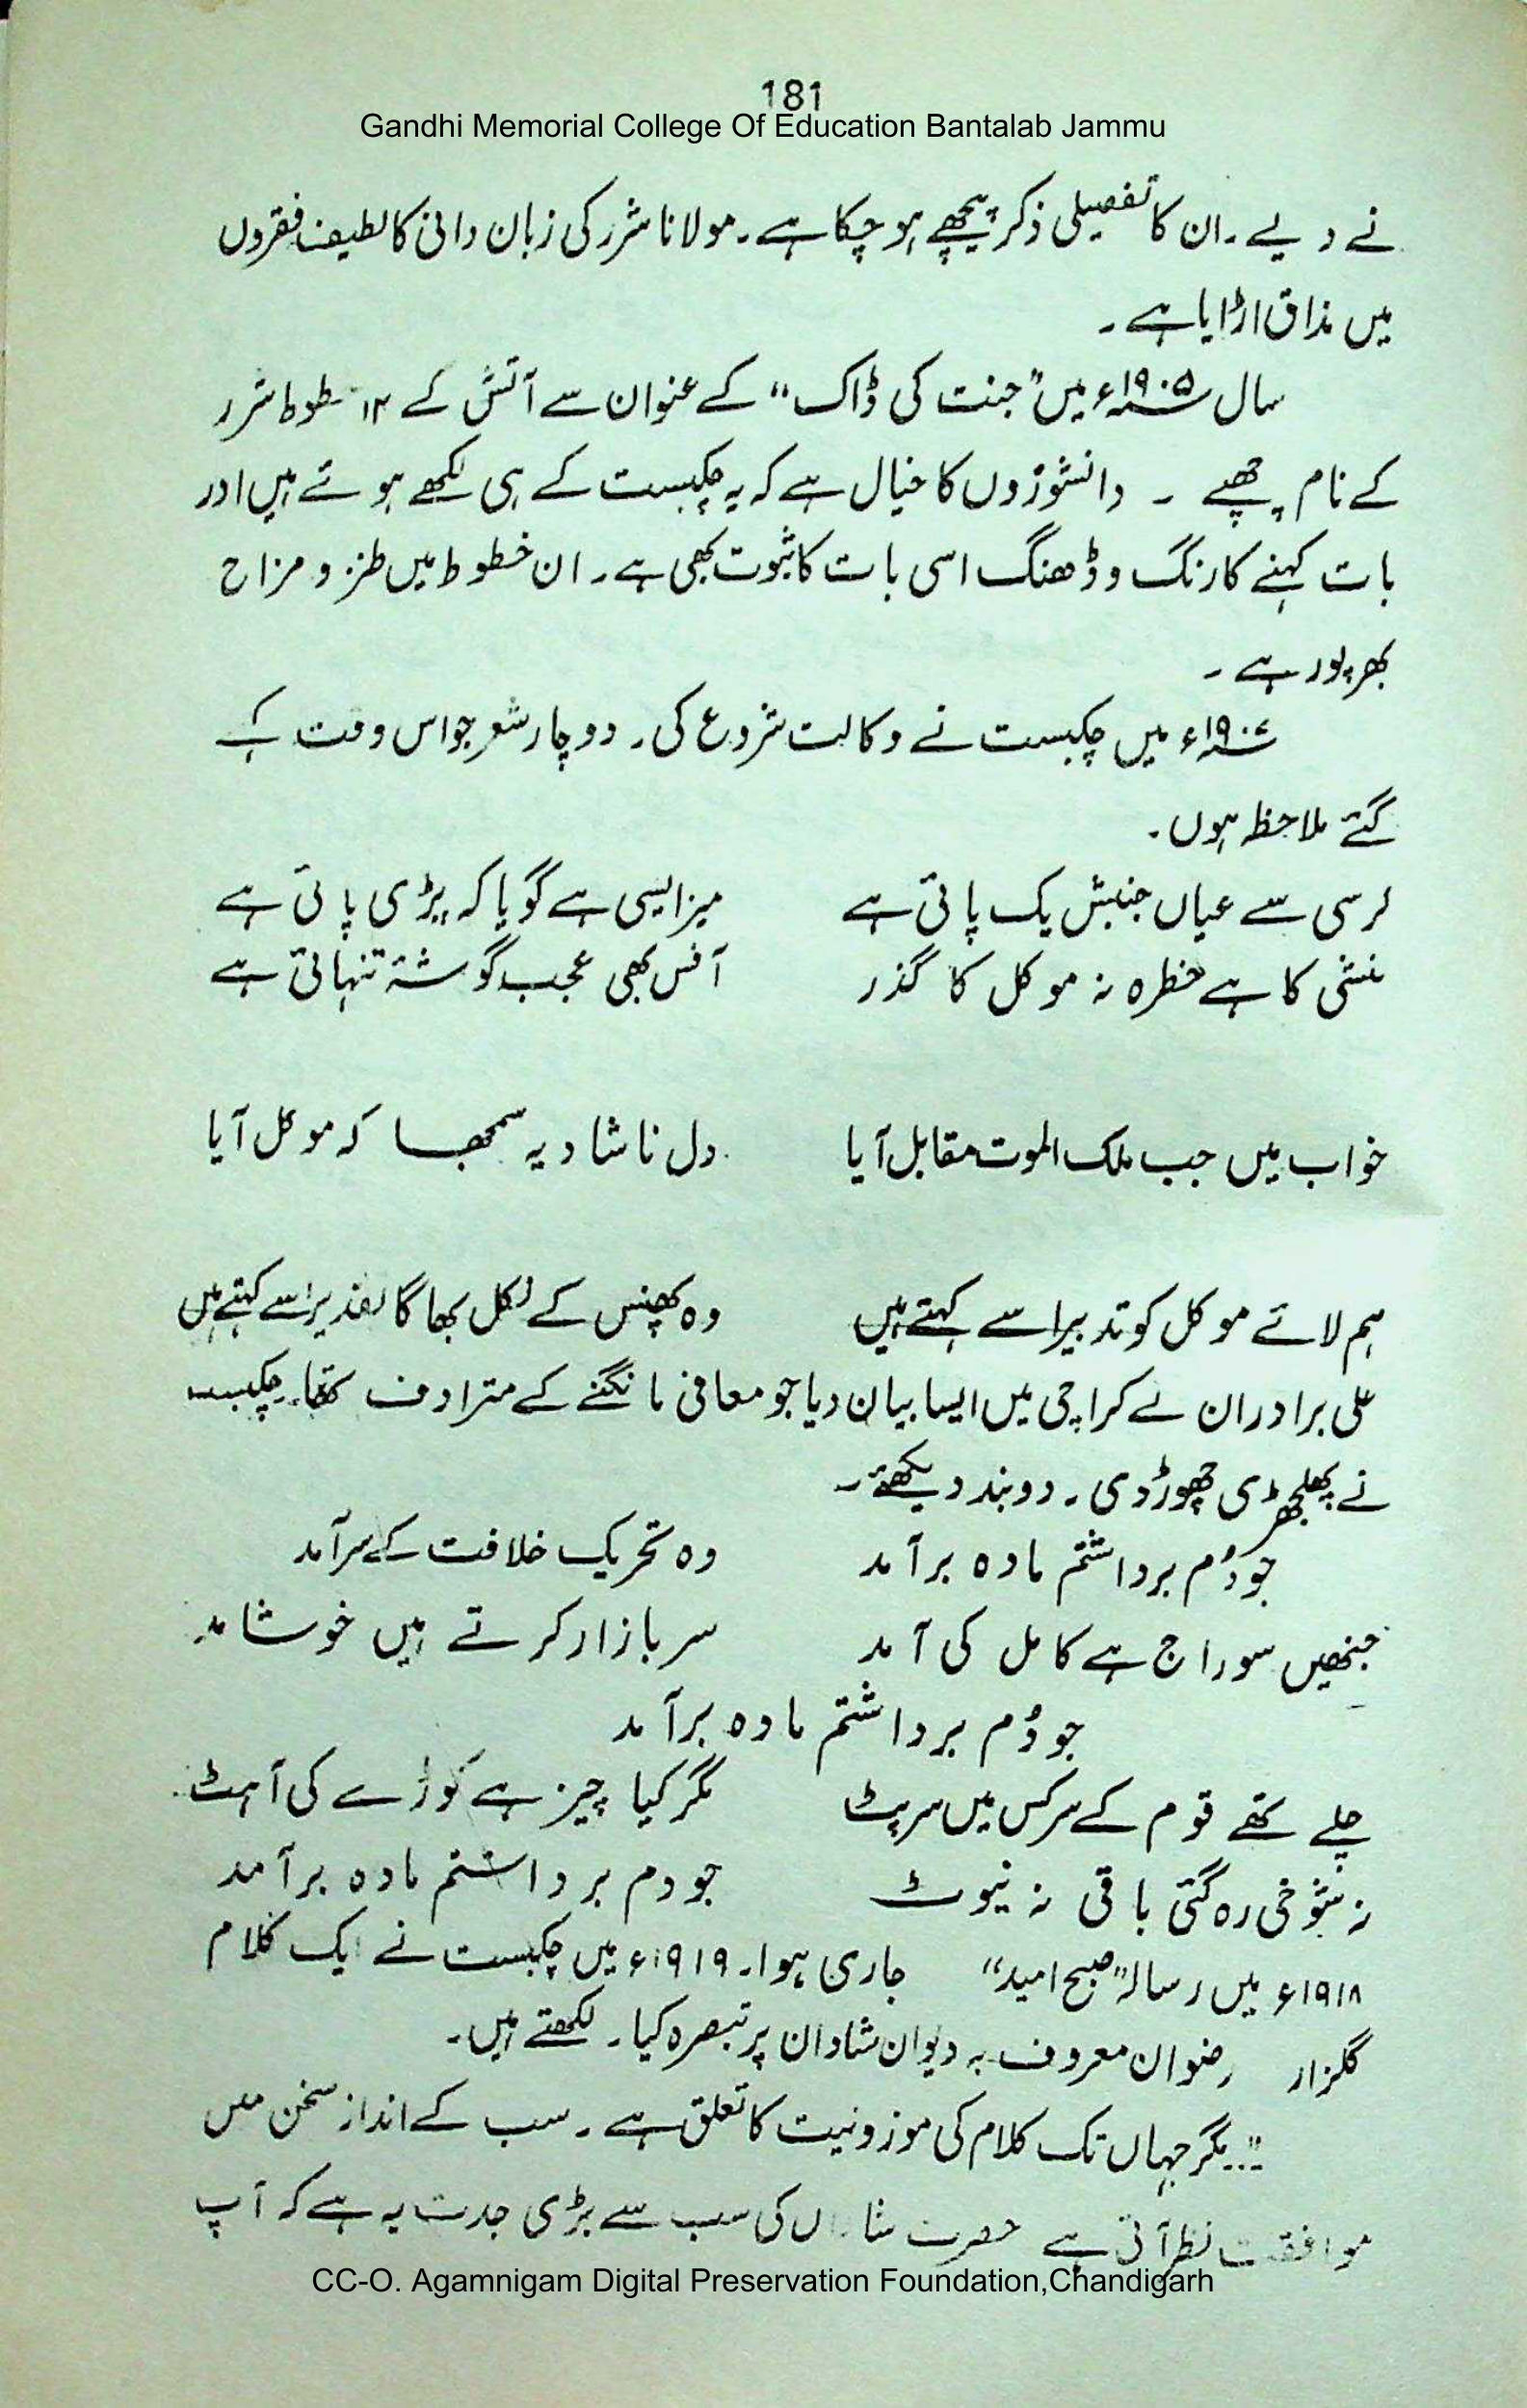 181
Gandhi Memorial College Of Education Bantalab Jammu
نے دیے ۔ ان کا تفصیلی ذکر پیچھے ہو چکا ہے ۔ مولانا شرر کی زبان دانی کا لطیف فقروں
میں مذاق اڑایا ہے ۔
سال ۱۹۰۵ء میں "جنت کی ڈاک" کے عنوان سے آتش کے ۱۲ خطوط شرر
کے نام چھپے ۔ دانشوروں کا خیال ہے کہ یہ چکبست کے ہی لکھے ہوئے ہیں اور
بات کہنے کا رنگ و ڈھنگ اسی بات کا ثبوت بھی ہے ۔ ان خطوط میں طنز و مزاح
بھرپور ہے ۔
میں چکبست نے وکالت شروع کی ۔ دو چار شعر جو اس وقت کہے
گئے ملاحظہ ہوں ۔
کرسی سے عیاں جنبش یک پائی ہے میز ایسی ہے گویا کہ پڑی پائی ہے
منشی کا ہے خطرہ نہ موکل کا گذر آفس بھی عجب گوشۂ تنہائی ہے
خواب میں جب ملک الموت مقابل آیا دل ناشاد یہ سمجھا کہ موکل آیا
ہم لائے موکل کو تدبیر اسے کہتے ہیں وہ پھنس کے نکل بھاگا تقدیر اسے کہتے ہیں
علی برادران نے کراچی میں ایسا بیان دیا جو معافی مانگنے کے مترادف تھا ۔ چکبست
نے پھلجھڑی چھوڑ دی ۔ دو بند دیکھئے ۔
جو دُم برداشتم مادہ برآمد وہ تحریک خلافت کے سرآمد
جنھیں سوراج ہے کامل کی آمد سر بازار کرتے ہیں خوشامد
جو دُم برداشتم مادہ برآمد
چلے تھے قوم کے سرکس میں سرپٹ مگر کیا چیز ہے کوڑے کی آہٹ
نہ شوخی رہ گئی باقی نہ نیوٹ جو دم برداشتم مادہ برآمد
۱۹۱۸ء میں رسالہ "صبح امید" جاری ہوا ۔ ۱۹۱۹ء میں چکبست نے ایک کلام
گلزار رضوان معروف بہ دیوان شادان پر تبصرہ کیا ۔ لکھتے ہیں ۔
"... مگر جہاں تک کلام کی موزونیت کا تعلق ہے ۔ سب کے انداز سخن میں
موافقت نظر آتی ہے حضرت شاداں کی سب سے بڑی جدت یہ ہے کہ آپ
CC-O. Agamnigam Digital Preservation Foundation,Chandigarh